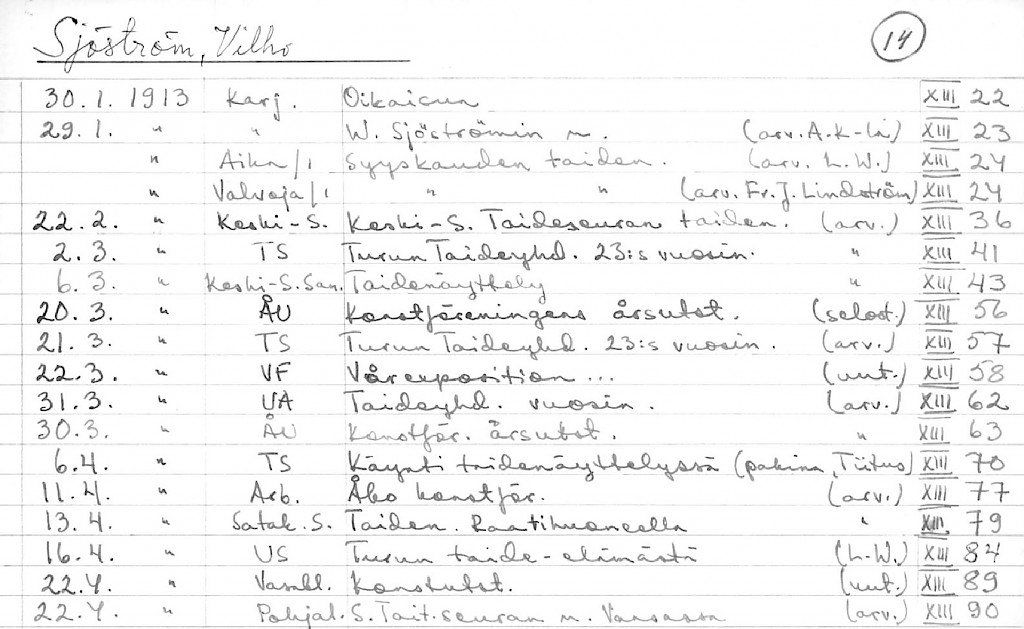 Sjöström, Vilho 14
30.1. 1913 Karj. Oikaisun XIII 22
29.1. " " W. Sjöströmin n. (arv. A.K-la) XIII 23
" Aika/1 Syyskauden taiden. (arv. L.W.) XIII 24
" Valvoja/1 " " (arv. Fr. J. Lindström) XIII 24
22.2. " Keski-S. Keski-S. Taideseuran taiden. (arv.) XIII 36
2.3. " TS Turun Taideyhd. 23:s vuosin. " XIII 41
6.3. " Keski-S. San. Taidenäyttely " XIII 43
20.3. " ÅU Konstföreningens årsutst. (selost.) XIII 56
21.3. " TS Turun Taideyhd. 23:s vuosin. (arv.) XIII 57
22.3. " VF Vårexposition ... (uut.) XIII 58
31.3. " UA Taideyhd. vuosin. (arv.) XIII 62
30.3. " ÅU Konstför. årsutst. " XIII 63
6.4. " TS Käynti taidenäyttelyssä (pakina, Tiitus) XIII 70
11.4. " Arb. Åbo konstför. (arv.) XIII 77
13.4. " Satak. S. Taiden. Raatihuoneella " XIII 79
16.4. " US Turun taide-elämästä (L-W.) XIII 84
22.4. " Vasabl. Konstutst. (uut.) XIII 89
22.4. " Pohjal. S. Tait. seuran n. Vaasassa (arv.) XIII 90